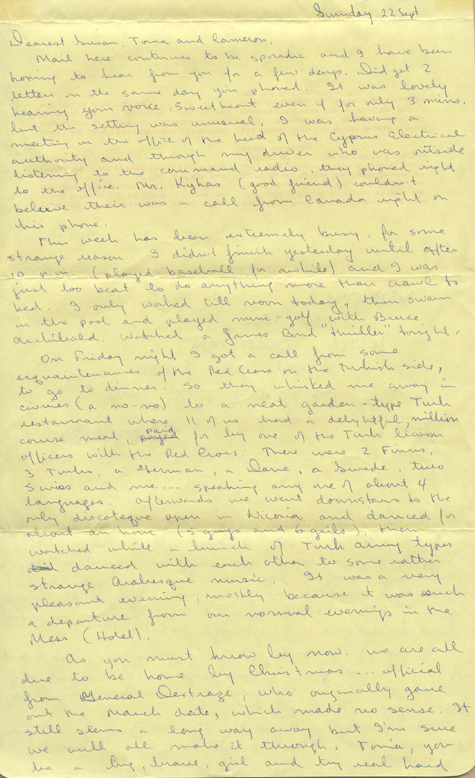 Sunday 22 Sept
Dearest Susan, Tonia and Cameron,
Mail here continues to be sporadic and I have been
hoping to hear from you for a few days. Did get 2
letters on the same day you phoned. It was lovely
hearing your voice, Sweetheart even if for only 3 mins.
but the setting was unusual. I was having a
meeting in the office of the head of the Cyprus Electrical
authority and through my driver who was outside
listening to the command radio, they phoned right
to the office. Mr. (good friend) couldn't
believe their was a call from Canada right on
his phone.
This week has been extremely busy, for some
strange reason I didn't finish yesterday until after
10 p.m. (played baseball for awhile) and I was
just too beat to do anything more than crawl to
bed. I only worked till noon today, then swam
in the pool and played mini-golf with Bruce
Archibald. Watched a James Bond "thriller" tonight.
On Friday night I got a call from some
acquaintenances of the Red Cross on the Turkish side,
to go to dinner. So they whisked me away in
civvies (a no-no) to a neat garden-type Turk
restaurant where 11 of us had a delightful, million
course meal, paid for by one of the Turk liaison
officers with the Red Cross. There were 2 Finns,
3 Turks, a German, a Dane, a Swede, two
Swiss and me... speaking any one of about 4
languages. Afterwards we went downstairs to the
only discoteque open in Nicosia and danced for
about an hour (5 guys and 6 girls), then
watched while a bunch of Turk army types
danced with each other to some rather
strange Arabesque music. It was a very
pleasant evening, mostly because it was such
a departure from our normal evenings in the
Mess (Hotel).
As you must know by now, we are all
due to be home by Christmas... official
from General who originally gave
out the March date, which made no sense. It
still seems a long way away but I'm sure
we will all make it through. Tonia, you
be a big, brave, girl and try real hard